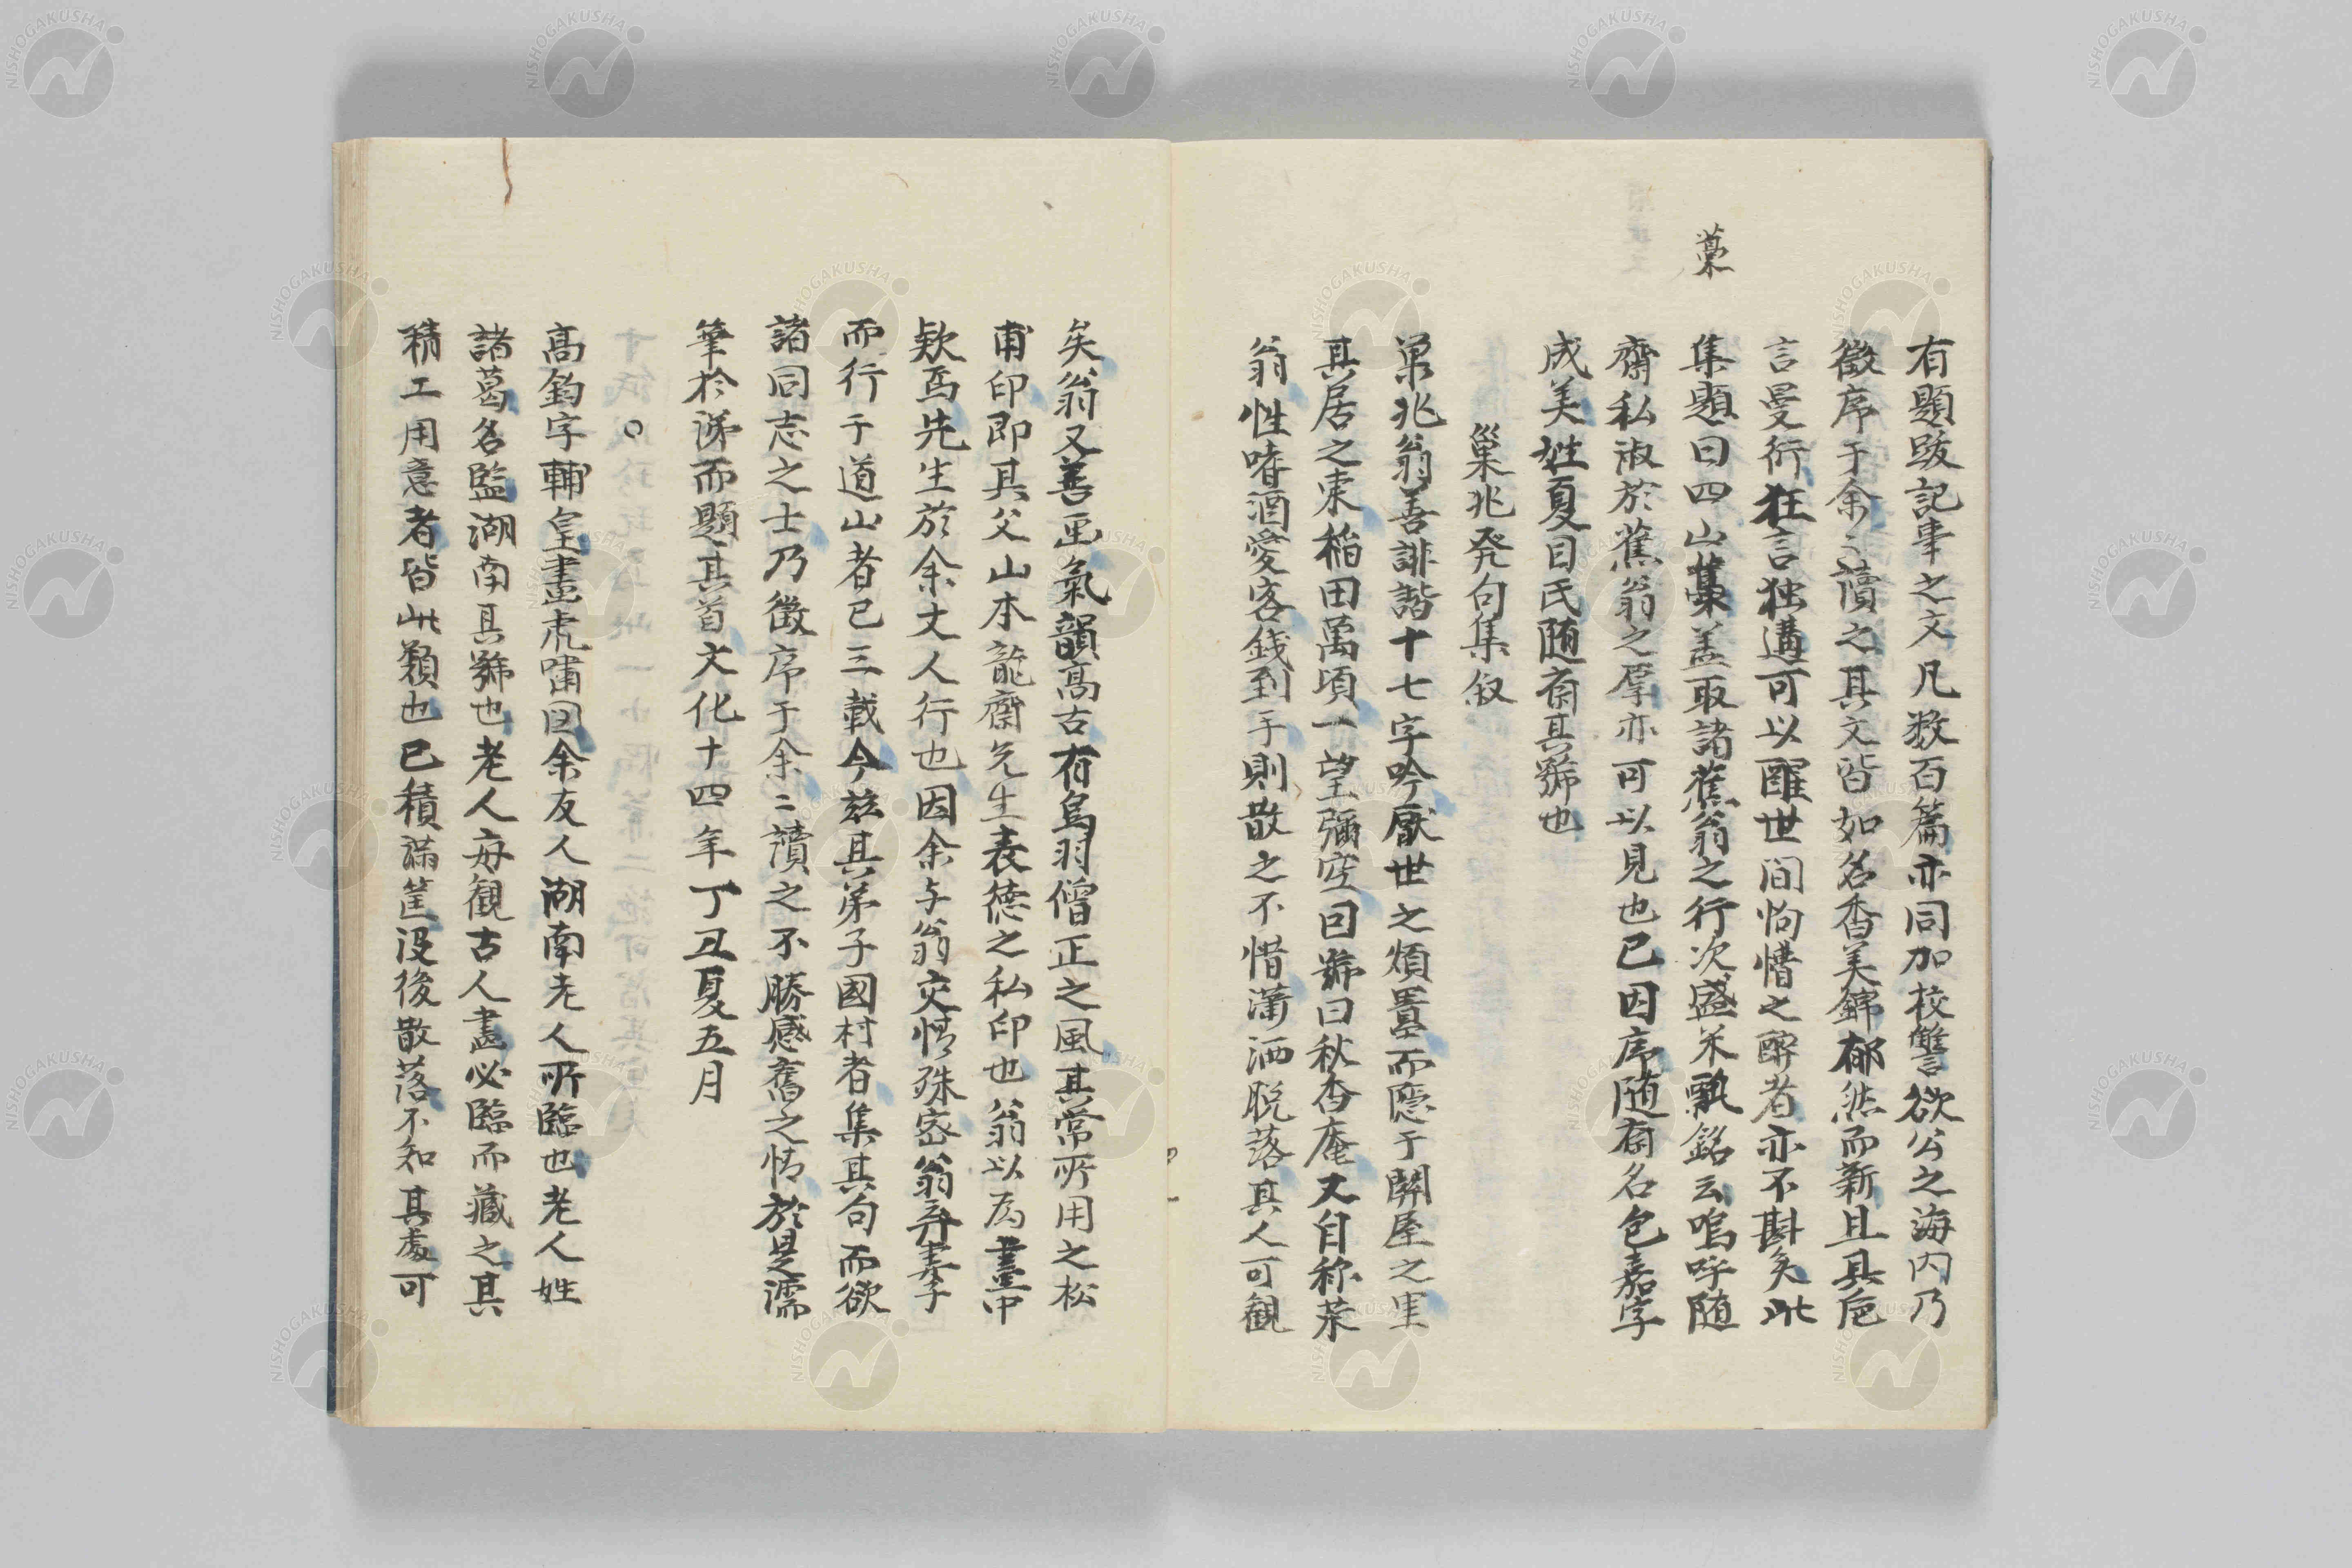 藁
有題跋記事之文凡数百篇亦同加校讐欲公之海内乃
徴序于余々讀之其文皆如名香美錦郁然而新且具卮
言曼衍狂言独遘可以醒世间恂懵之醉者亦不尠矣此
集題曰四山藁盖取諸蕉翁之行次盛米瓢銘云嗚呼随
齋私淑於蕉翁之厚亦可以見也已因序随斎名包嘉字
成美姓夏目氏随斎其號也
巢兆発句集叙
巢兆翁善誹諧十七字吟厭世之煩囂而隠于關屋之里
其居之東稲田萬頃一望彌空曰號曰秋香庵又自称菜
翁性嗜酒愛客銭到手則散之不惜瀟洒脱落其人可観
矣翁又善画氣韻髙古有鳥羽僧正之風其常所用之松
甫印即其父山本龍齋先生表徳之私印也翁以為畫中
欵焉先生於余丈人行也因余与翁交情殊密翁弃妻子
而行于道山者已三載今玆其弟子國村者集其句而欲
諸同志之士乃徴序于余二讀之不勝感舊之情於是濡
筆於涕而題其首文化十四年丁丑夏五月
○
髙鈞字輔皇畫虎嘯図余友人湖南老人所臨也老人姓
諸葛名監湖南其號也老人毎観古人畫必臨而藏之其
積工用意者皆此類也已積滿筐没後散落不知其處可
NISHOGAKUSHA